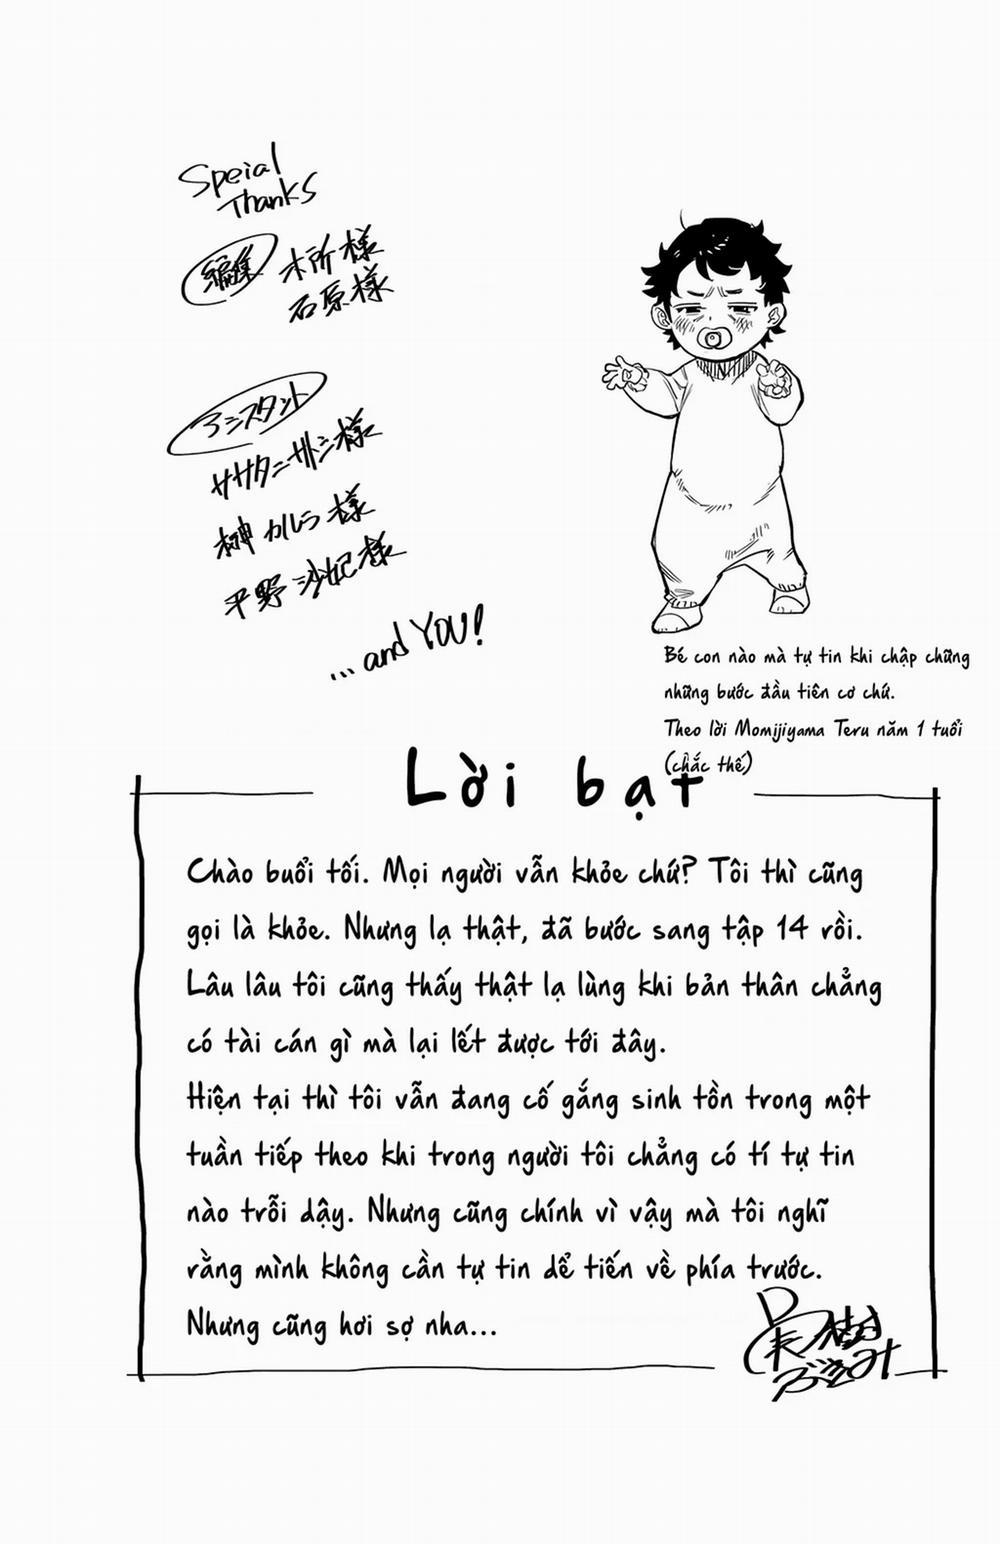 Speial
Thanks
編集 木所様
石原様
アシスタント
ササタニ サトシ様
榊 カルラ様
平野 沙妃様
... and YOU!
Bé con nào mà tự tin khi chập chững
những bước đầu tiên cơ chứ.
Theo lời Momijiyama Teru năm 1 tuổi
(chắc thế)
Lời bạt
Chào buổi tối. Mọi người vẫn khỏe chứ? Tôi thì cũng
gọi là khỏe. Nhưng lạ thật, đã bước sang tập 14 rồi.
Lâu lâu tôi cũng thấy thật lạ lùng khi bản thân chẳng
có tài cán gì mà lại lết được tới đây.
Hiện tại thì tôi vẫn đang cố gắng sinh tồn trong một
tuần tiếp theo khi trong người tôi chẳng có tí tự tin
nào trỗi dậy. Nhưng cũng chính vì vậy mà tôi nghĩ
rằng mình không cần tự tin dể tiến về phía trước.
Nhưng cũng hơi sợ nha...